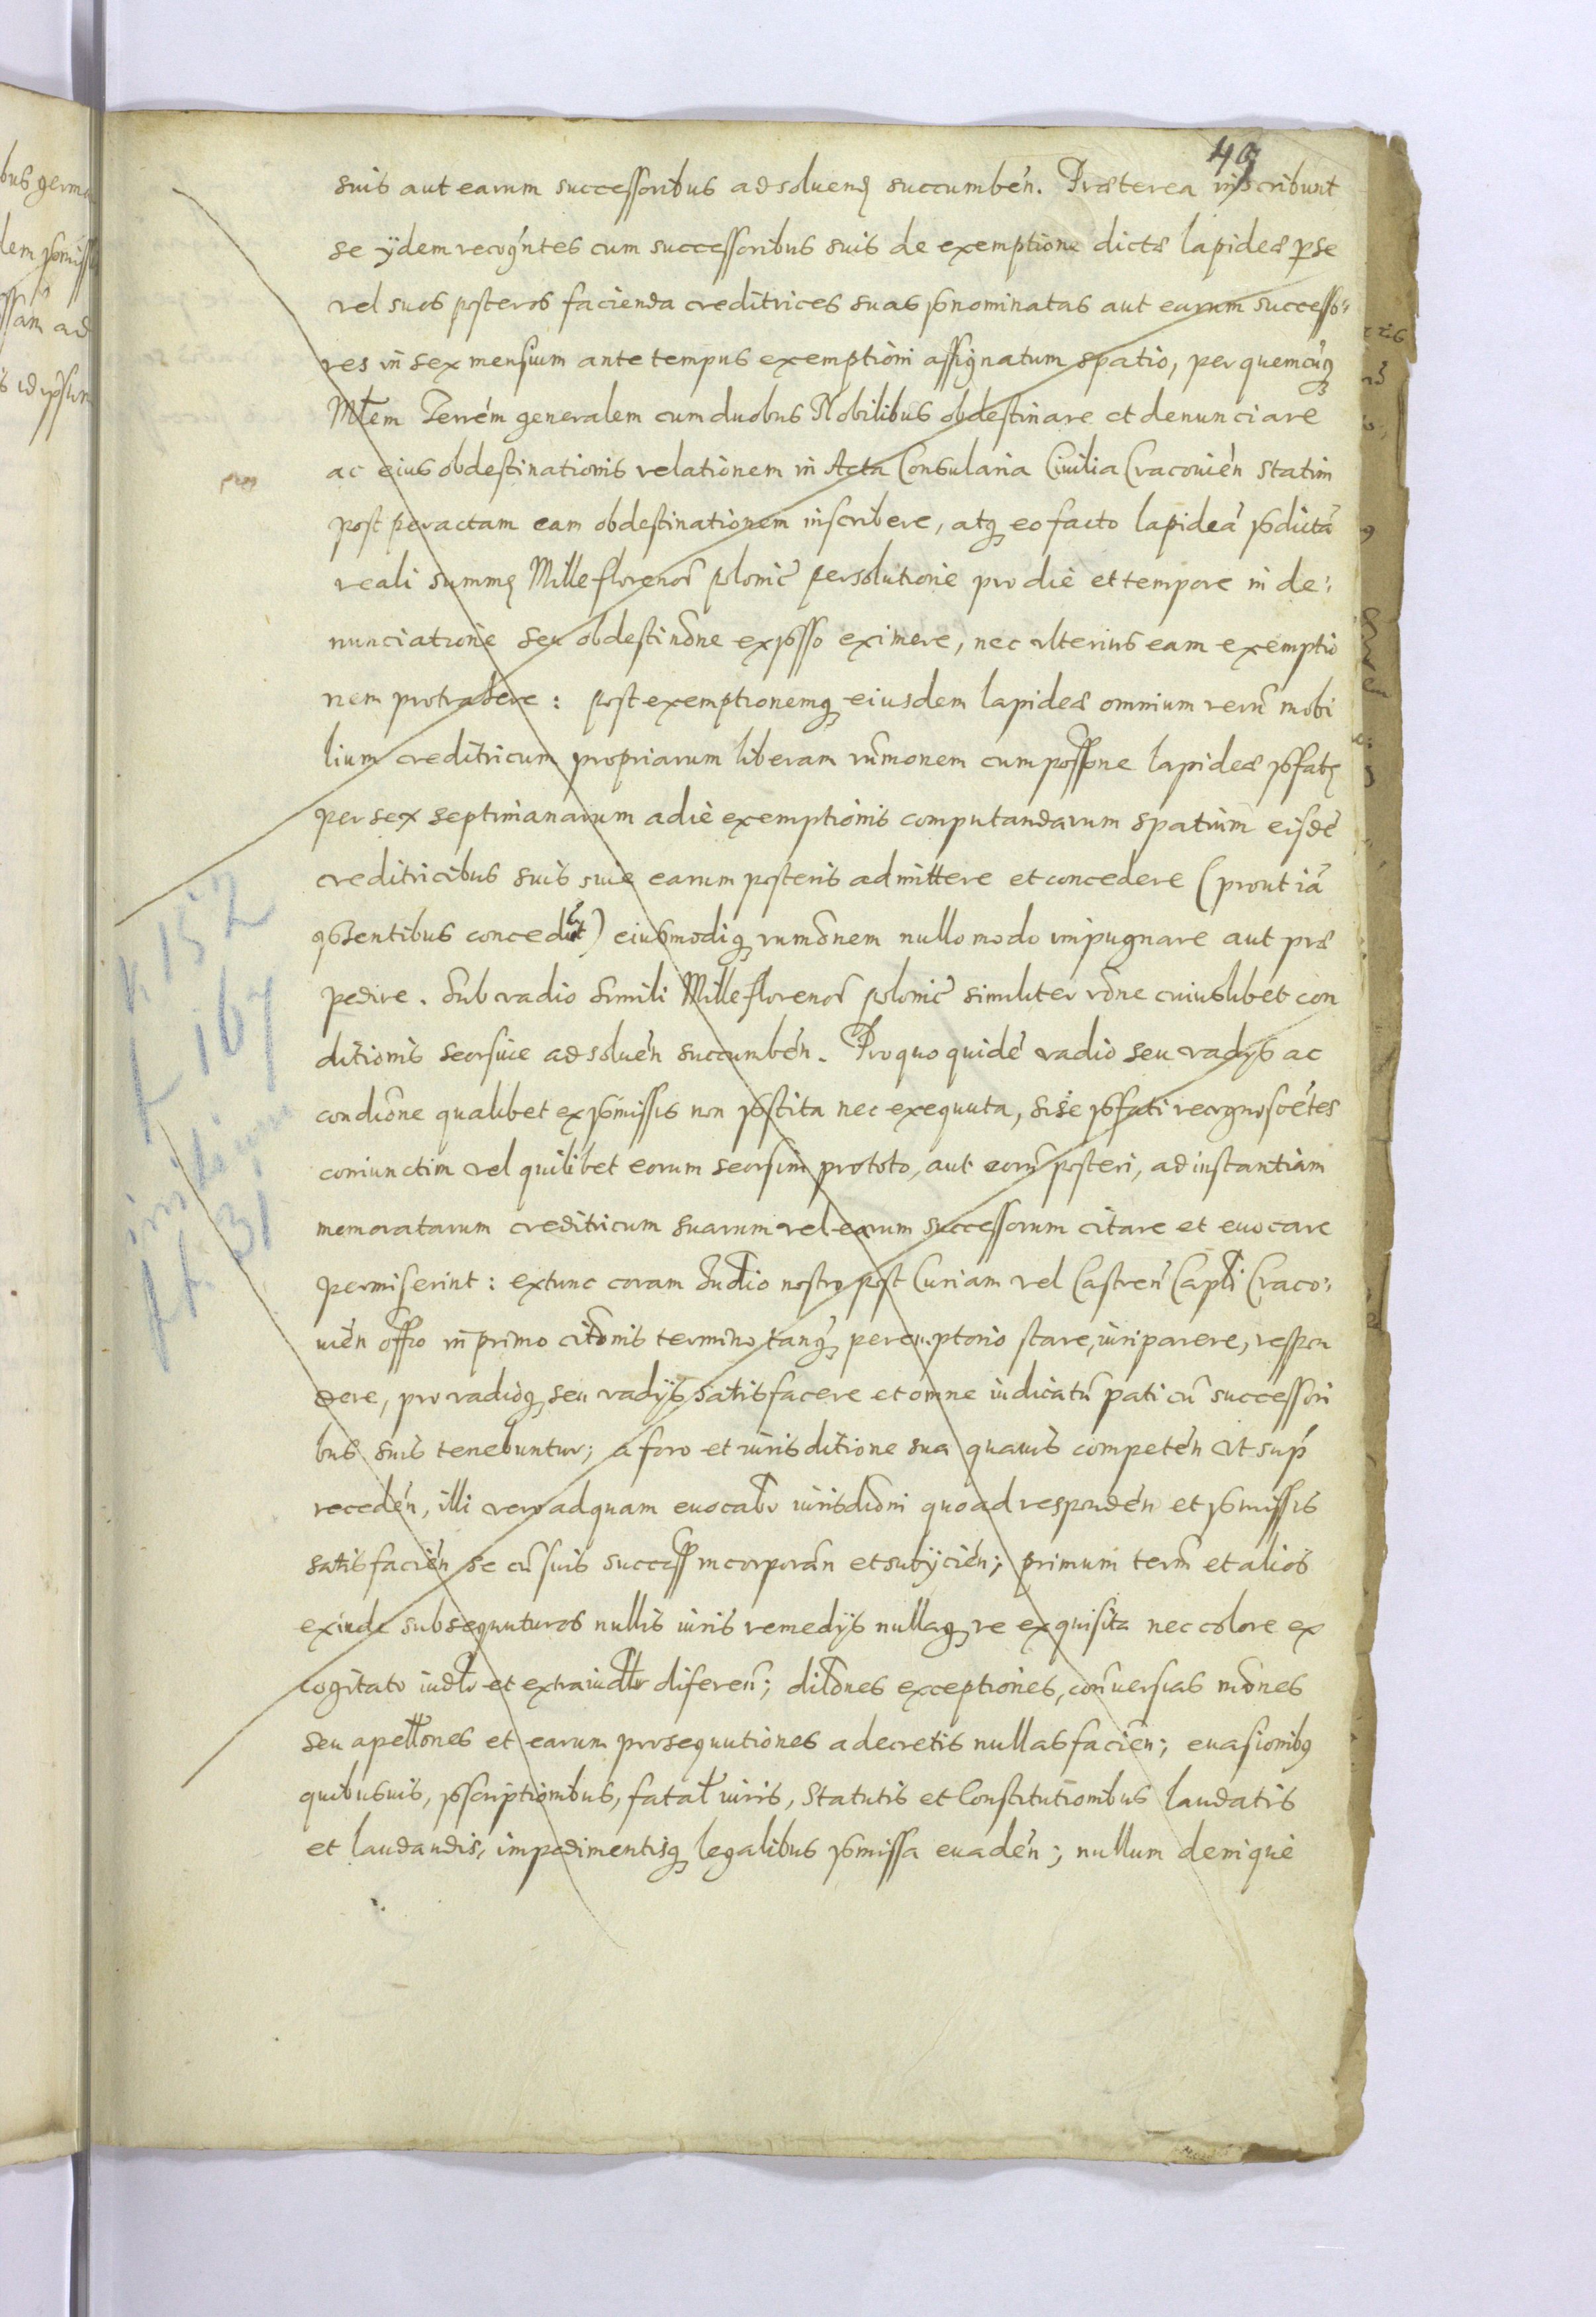 49
suis aut earum successoribus adsoluend succumbén. Præterea inscribunt
se ÿdem recogńtes cum successoribus suis de exemptione dictæ lapideæ p se
vel suos posteros facienda creditrices suas p̃nominatas aut earum successo:
res in sex mensium ante tempus exemptioni assignatum spatio, per quemcunq
Mtem Terrém generalem cum duobus Nobilibus obdestinare et denunciare
ac eius obdestinationis relationem in Acta Consularia Civilia Cracovién statim
post peractam eam obdestinationem inscribere, atq eo facto lapideã p̃dictã
reali summę Mille florenoꝝ polonic̃ persolutione pro die et tempore in de:
nunciatione seu obdestinõne exp̃sso eximere, nec ulterius eam exemptio
nem protrahere: post exemptionemq eiusdem lapideæ omnium rerũ mobi
lium creditricum propriarum liberam rũmonem cum possone lapideæ p̃fatę
per sex septimanarum a die exemptionis computandarum spatium eisdẽ
creditricibus suis suie earum posteris admittere et concedere (prout iã
p̃sentibus concedũt) eiusmodiq rumõnem nullo modo impugnare aut præ
pedire. Sub vadio simili Mille florenoꝝ polonic̃ similiter rõne cuiuslibet con
ditionis seorsive adsoluén succumbén. Pro quo quidẽ vadio seu vadÿs ac
condiõne qualibet ex p̃missis non p̃stita nec exequuta, si sẽ p̃fati recognoscẽtes
coniunctim vel quilibet eorum seorsim pro toto, aut eorũ posteri, ad instantiam
memoratarum creditricum suarum vel earum successorum citare et evocare
permiserint: extunc coram Iudio nostro post Curiam vel Castreñ Capli Craco:
vién offo in primo citõnis termino tanq̃ peremptorio stare, iuri parere, respon
dere, pro vadioq seu vadÿs satisfacere et omne iudicatũ pati cũ successori
bus suis tenebuntur; a foro et iurisditione sua quavis competén ut sup̃
recedén, illi vero ad quam evocabr iurisdõni quoad respondén et p̃missis
satisfacién se cũ suis success incorporãn et subÿcién; primum terñ et alios
exinde subsequuturos nullis iuris remedÿs nullaq re exquisita nec colore ex
cogitato iudlr et extraiudlr difereñ; dilõnes exceptiones, conversias mõnes
seu apellones et earum prosequutiones a decretis nullas facién; evasionibq
quibusvis, p̃scriptionibus, fatal iuris, Statutis et Constitutionibus laudatis
et laudandis, impedimentisq legalibus p̃missa evadén; nullum denique
K 152
K 167
K 31